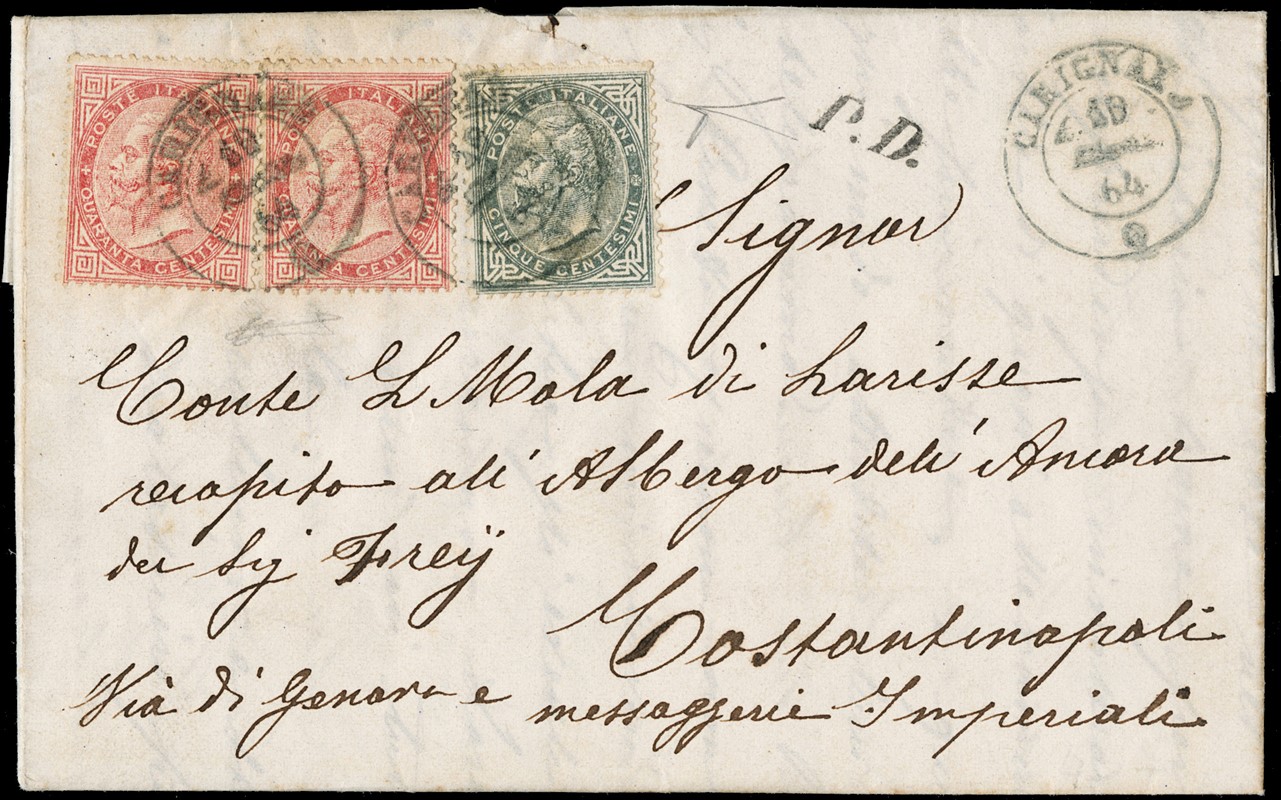 POSTE ITALIANE
QUARANTA CENTESIMI
POSTE ITALIANE
QUARANTA CENTESIMI
POSTE ITALIANE
CINQUE CENTESIMI
P.D.
64
Signor
Conte L Mola di Larisse
recapito all' Albergo dell' Ancora
del Sig Freÿ
Costantinopoli
Via di Genova e
messaggerie Imperiali